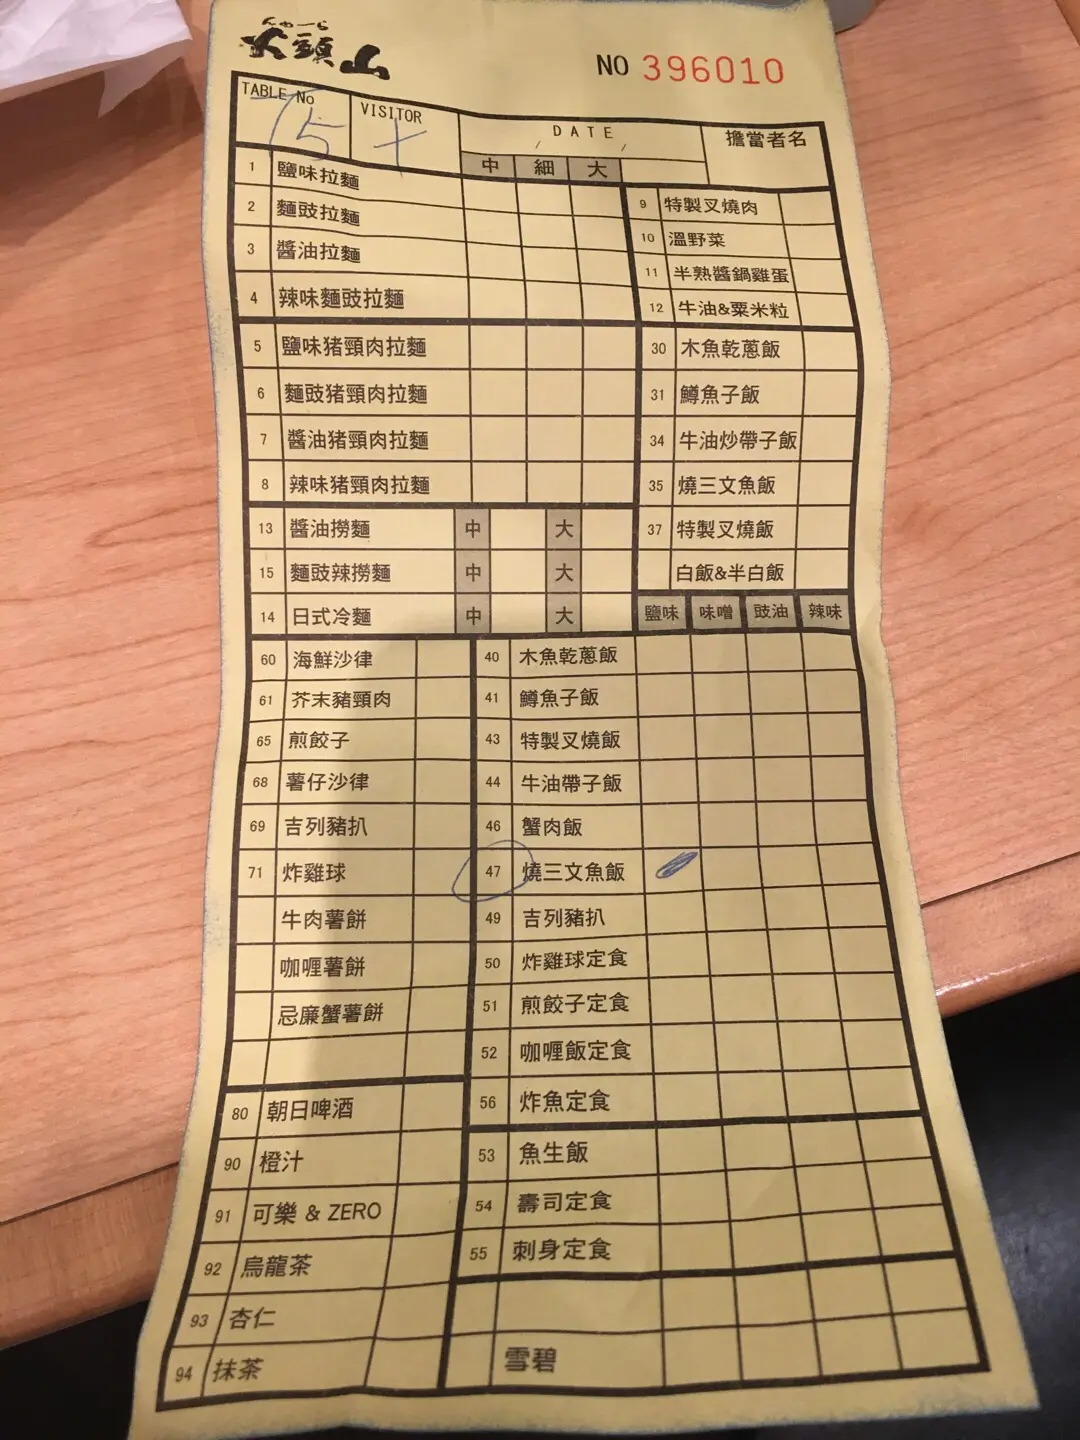 らーめん
火頭山
NO 396010
TABLE No
VISITOR
DATE
擔當者名
中 細 大
1 鹽味拉麵
2 麵豉拉麵
3 醬油拉麵
4 辣味麵豉拉麵
5 鹽味猪頸肉拉麵
6 麵豉猪頸肉拉麵
7 醬油猪頸肉拉麵
8 辣味猪頸肉拉麵
13 醬油撈麵 中 大
15 麵豉辣撈麵 中 大
14 日式冷麵 中 大
9 特製叉燒肉
10 溫野菜
11 半熟醬鍋雞蛋
12 牛油&粟米粒
30 木魚乾蔥飯
31 鱒魚子飯
34 牛油炒帶子飯
35 燒三文魚飯
37 特製叉燒飯
白飯&半白飯
鹽味 味噌 豉油 辣味
60 海鮮沙律
61 芥末豬頸肉
65 煎餃子
68 薯仔沙律
69 吉列豬扒
71 炸雞球
牛肉薯餅
咖喱薯餅
忌廉蟹薯餅
80 朝日啤酒
90 橙汁
91 可樂 & ZERO
92 烏龍茶
93 杏仁
94 抹茶
40 木魚乾蔥飯
41 鱒魚子飯
43 特製叉燒飯
44 牛油帶子飯
46 蟹肉飯
47 燒三文魚飯
49 吉列豬扒
50 炸雞球定食
51 煎餃子定食
52 咖喱飯定食
56 炸魚定食
53 魚生飯
54 壽司定食
55 刺身定食
雪碧